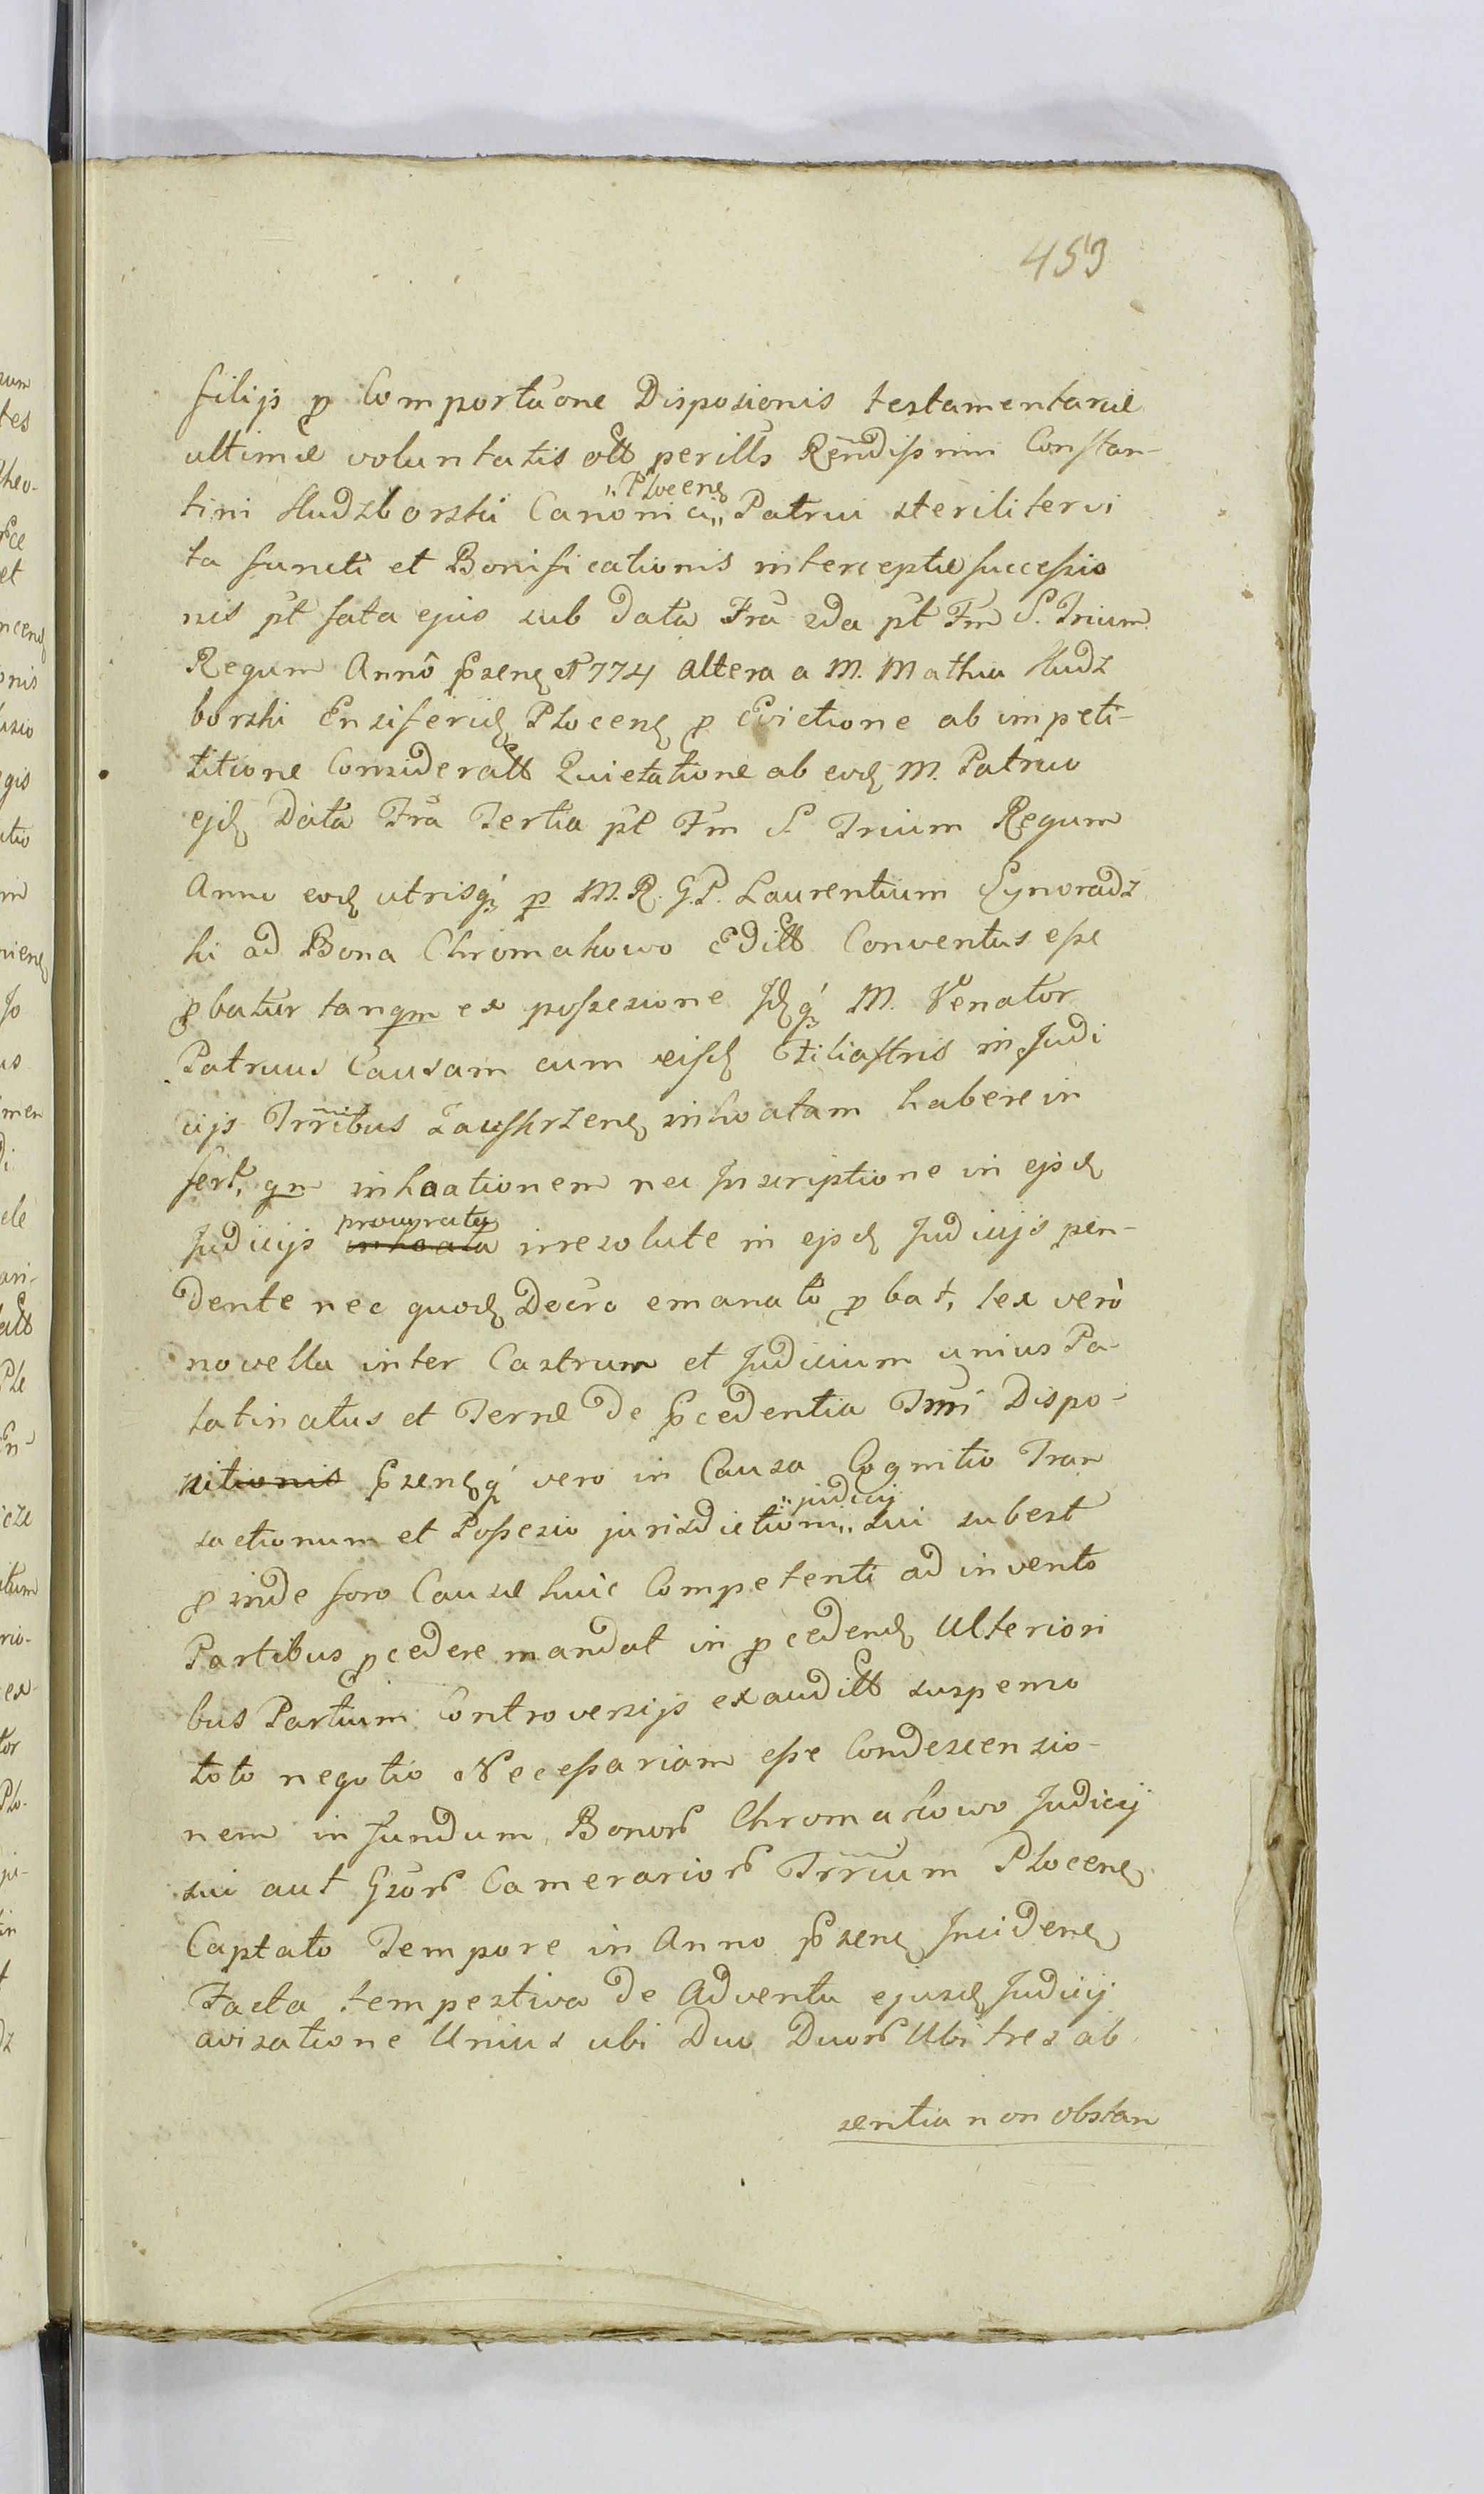 453
filijs p Comportaone Disposionis testamentariæ
ultimæ voluntatis olt perills Rendissimi Constan-
tini Hudzborski Canonici „Plocens„ Patrui steriliter vi
ta functi et Bonificationis interceptæ successio
nis pt fata ejus sub data Fra 2da pt Fm S. Trium
Regum Annô psens 1774 altera a M. Mathia Hudz
borski Ensiferid Plocens p Evictione ab impeti-
titione Consideratt Quietatione ab eod M. Patruo
ejd Data Fra Tertia pt Fm S. Trium Regum
Anno eod utrisq p M. R. G. P. Laurentium Synoradz
ki ad Bona Chromakowo Editt Conventus esse
pbatur tanqm ex possesione Idq M. Venator
Patruus Causam cum eisd Filiastris in Judi
cijs Trribus Zawskrzens inhoatam habere in
fert, qm inhoationem nec Inscriptione in ejsd
Judicijs inhoata procurata irresolute in ejsd Judicijs pen-
dente nec quod Decro emanato pbat, lex verò
novella inter Castrum et Judicium unius Pa-
latinatus et Terræ de pcedentia Trri Dispo-
sitionis psensq vero in Causa Cognitio Tran
sactionum et Possesio jurisdictioni „judicij„ sui subest
pinde foro Causæ huic Competenti ad invento
Partibus pcedere mandat in pcedend Ulteriori
bus Partium Controversijs exauditt suspenso
toto negotio Necessariam esse Condescensio-
nem in fundum Bonor Chromakowo Judicij
sui aut Gsor Camerarior Trrium Plocens
Captato Tempore in Anno psens Incidens
Facta tempestiva de Adventu ejusd Judicij
avisatione Unius ubi Duo Duor Ubi tres ab
sentia non obstan